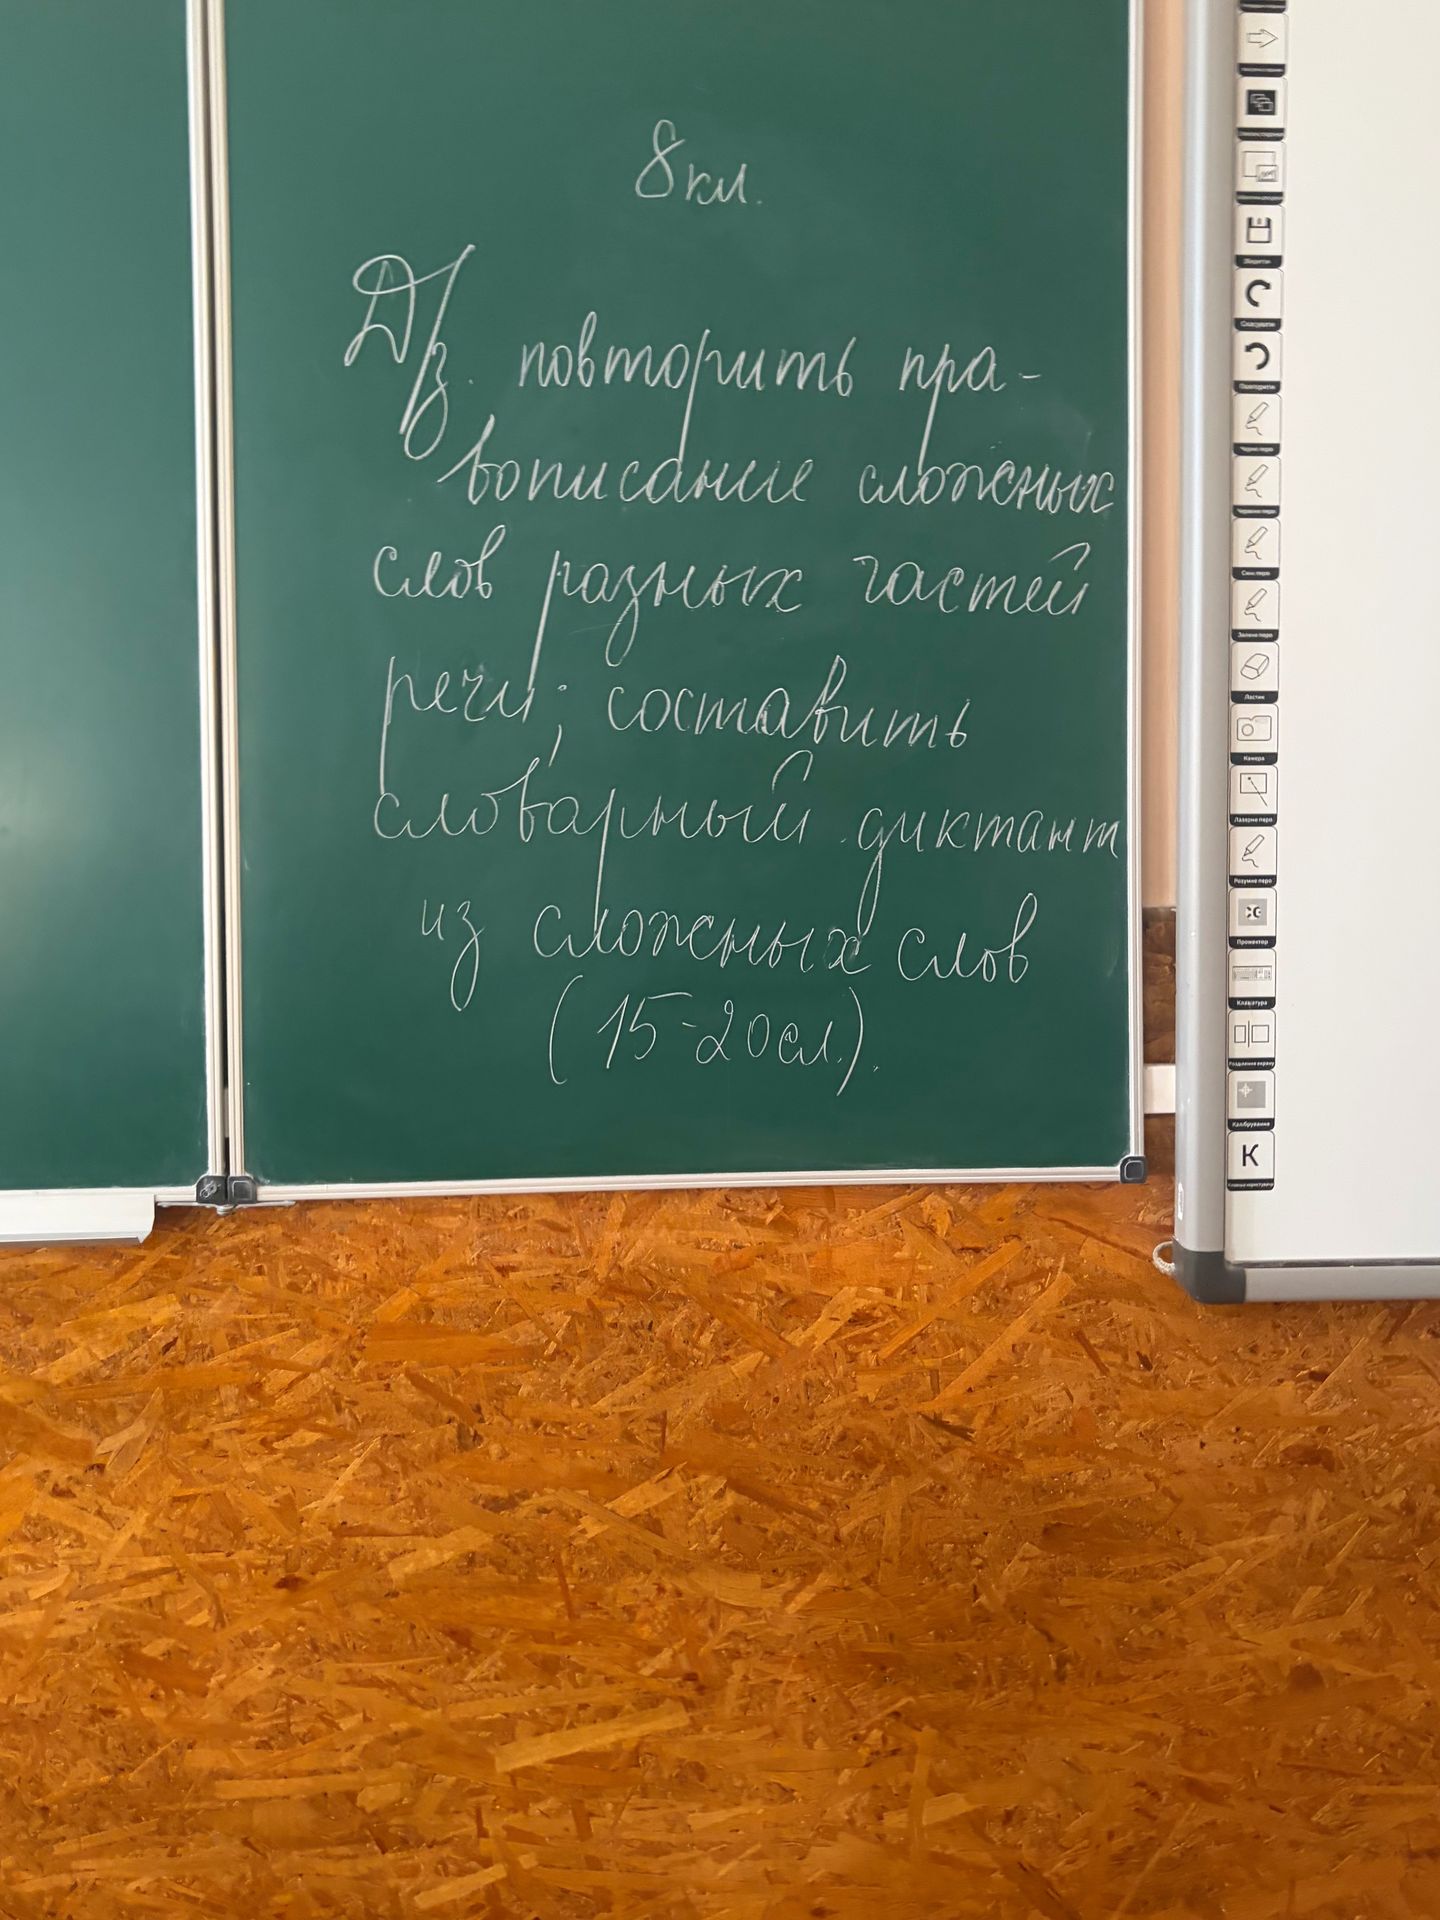 8 кл.
Д/з. повторить пра-
вописание сложных
слов разных частей
речи; составить
словарный диктант
из сложных слов
(15-20 сл.).
Зберегти
Скасувати
Повторити
Чорне перо
Червоне перо
Синє перо
Зелене перо
Ластик
Камера
Лазерне перо
Розумне перо
Прожектор
Клавіатура
Розділення екрану
Калібрування
K